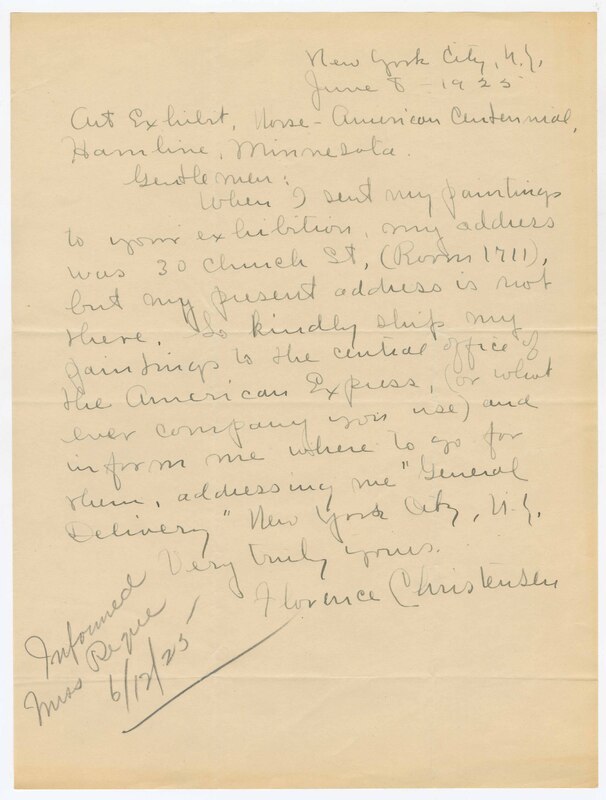 New York City, N.Y.
June 8 - 1925
Art Exhibit, Norse-American Centennial,
Hamline, Minnesota.
Gentlemen:
When I sent my paintings
to your exhibition, my address
was 30 Church St, (Room 1711),
but my present address is not
there. So kindly ship my
paintings to the central office of
the American Express, (or what
ever company you use) and
inform me where to go for
them, addressing me "General
Delivery" New York City, N.Y.
Very truly yours.
Florence Christensen
Informed
Miss Reque
6/12/25